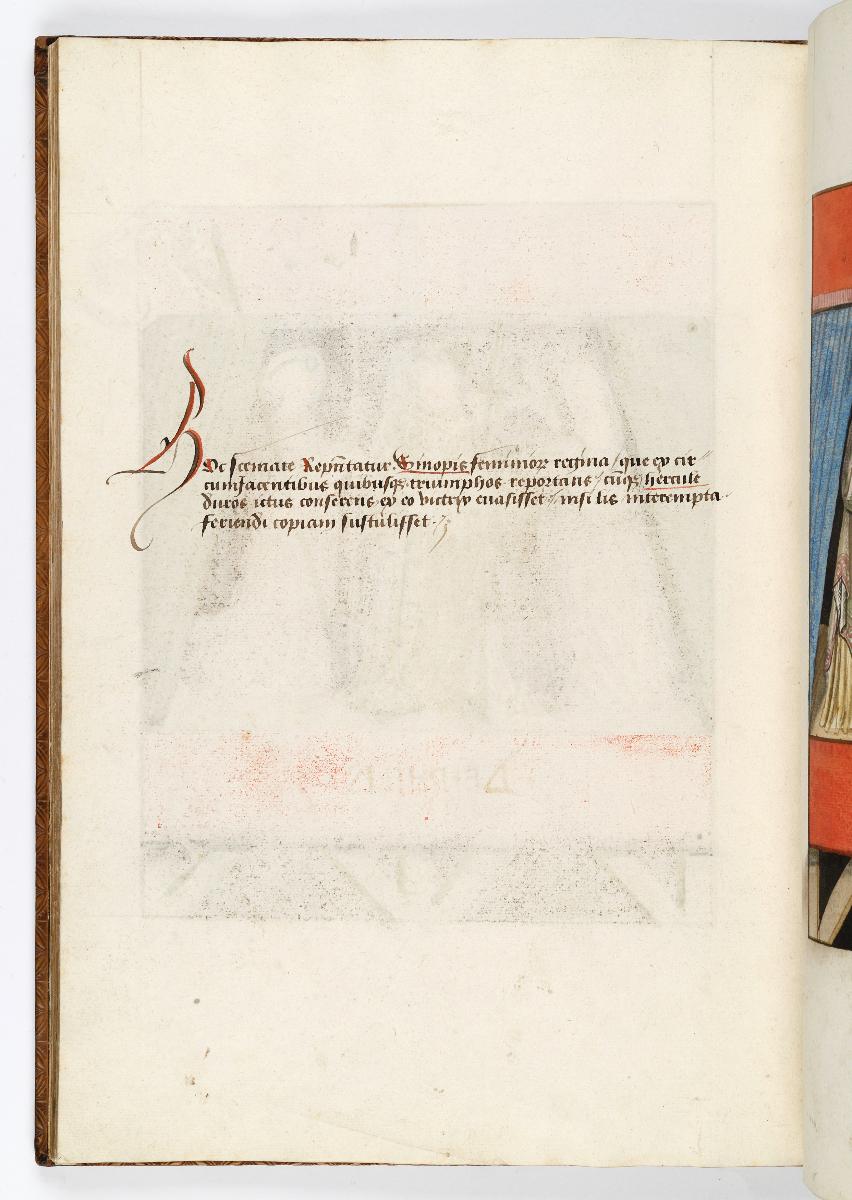 Hoc scemate Rep̅ntatur Sinopis feminioꝝ regina / que ex cir⸗
cumiacentibus quibusqꝫ triumphos reportans / cu̅qꝫ hercule
duros ictus conserens ex eo victrix euasisset / nisi lis intercempta
feriendi copiam sustulisset ·